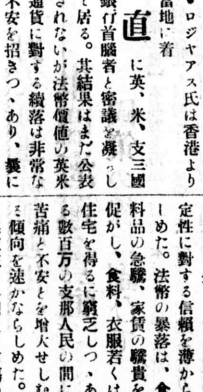 ・ロジャアス氏は香港より
當地に着
直に英、米、支三國
銀行首腦者と密議を凝らし
て居る。其結果はまだ公表
されないが法幣價値の英米
通貨に對する續落は非常な
不安を招きつゝあり、曩に
定性に對する信賴を薄から
しめた。法幣の暴落は、食
料品の急騰、家賃の騰貴を
促がし、食料、衣服若くは
住宅を得るに窮乏しつゝあ
る數百万の支那人民の間に
苦痛と不安とを增大せしむ
る傾向を速かならしめた。